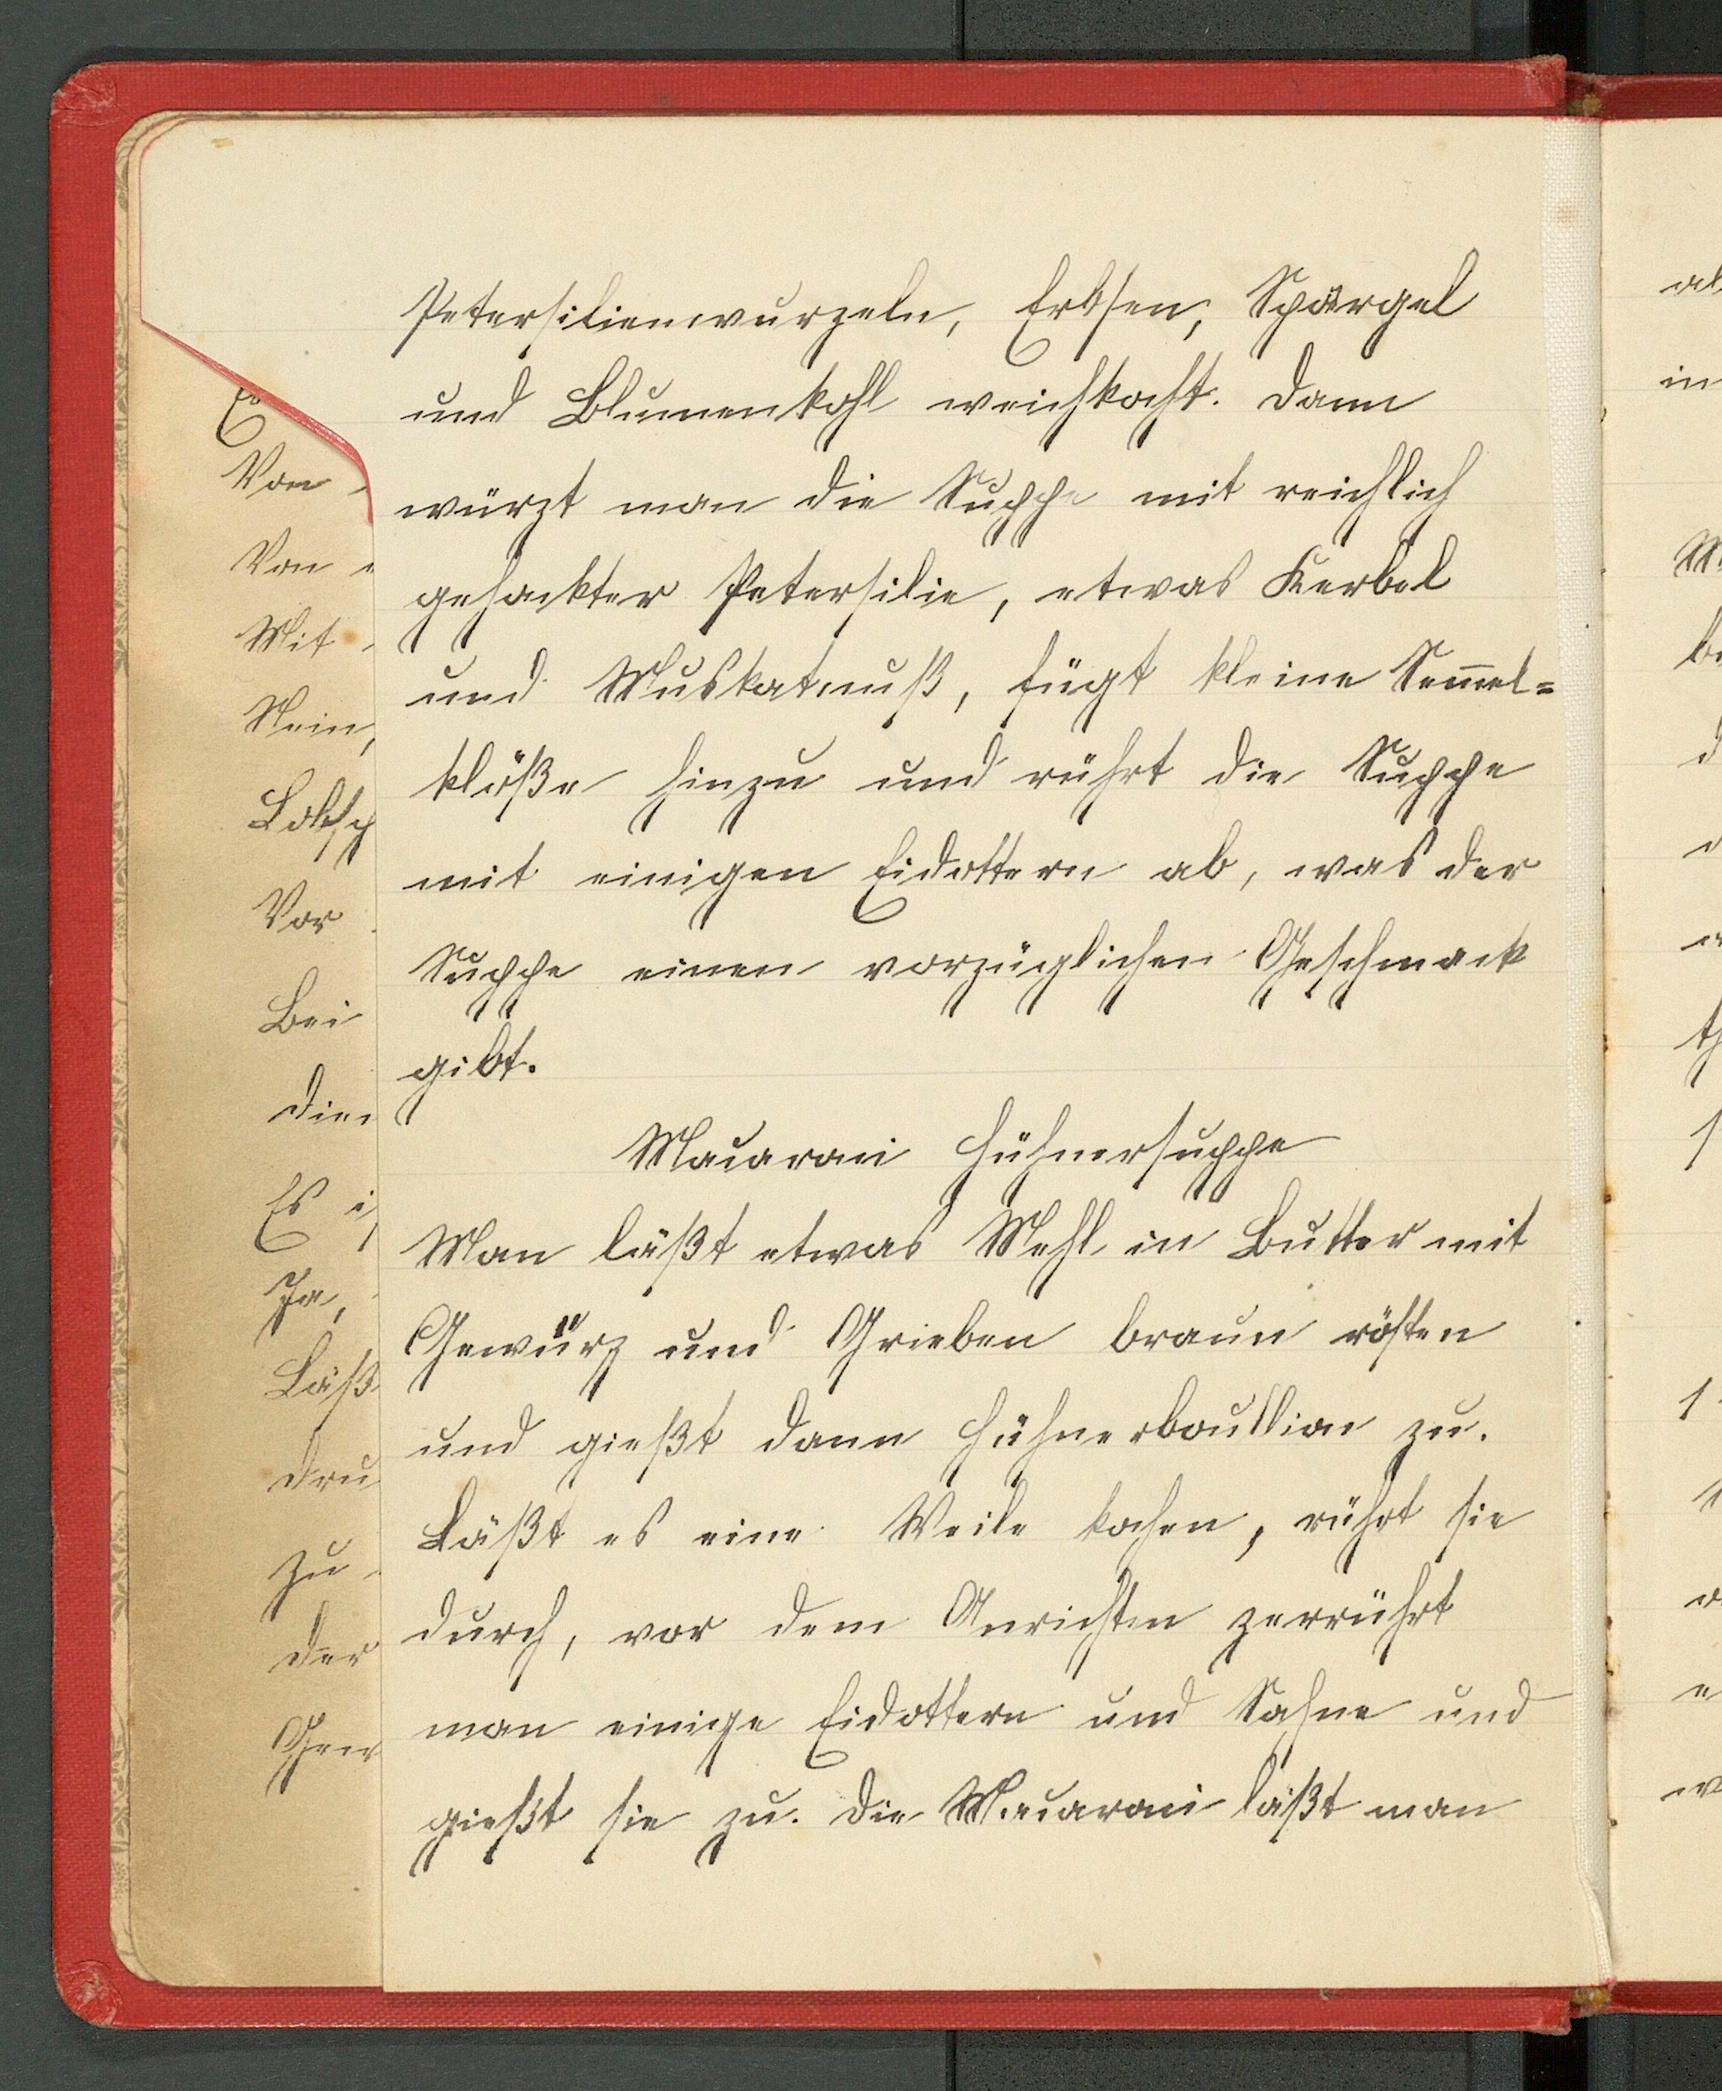 Petersilienwurzeln, Erbsen, Spargel
und Blumenkohl weichkocht. Dann
würzt man die Suppe mit reichlich
gehackter Petersilie, etwas Kerbel
und Muskatnuß, fügt kleine Sem̅el=
klöße hinzu und rührt die Suppe
mit einigen Eidottern ab, was der
Suppe einen vorzüglichen Geschmack
gibt.
Macaroni Hühnersuppe
Man läßt etwas Mehl in Butter mit
Gewürz und Grieben braun rösten
und gießt dann Hühnerboullion zu.
Läßt es eine Weile kochen, rührt sie
durch, vor dem Anrichten zerrührt
man einige Eidottern und Sahne und
gießt sie zu. Die Macaroni läßt man
Von
Von
Mit
Nein,
Vor
Bei
Es
Ja,
Läß
zu
der